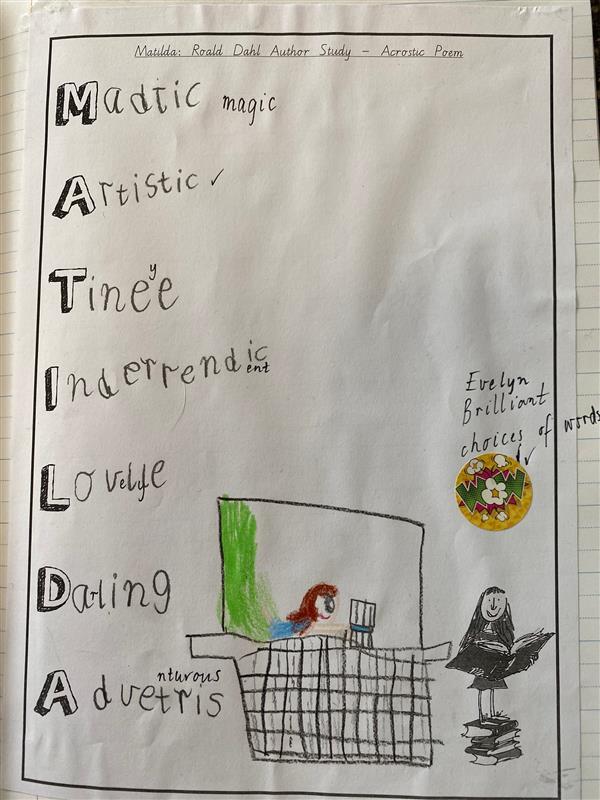 Matilda: Roald Dahl Author Study - Acrostic Poem
Madtic magic
Artistic ✓
Tineey
Inderrendic ent
Lovelye
Evelyn
Brilliant
choices of words
Daring
Advetris nturous